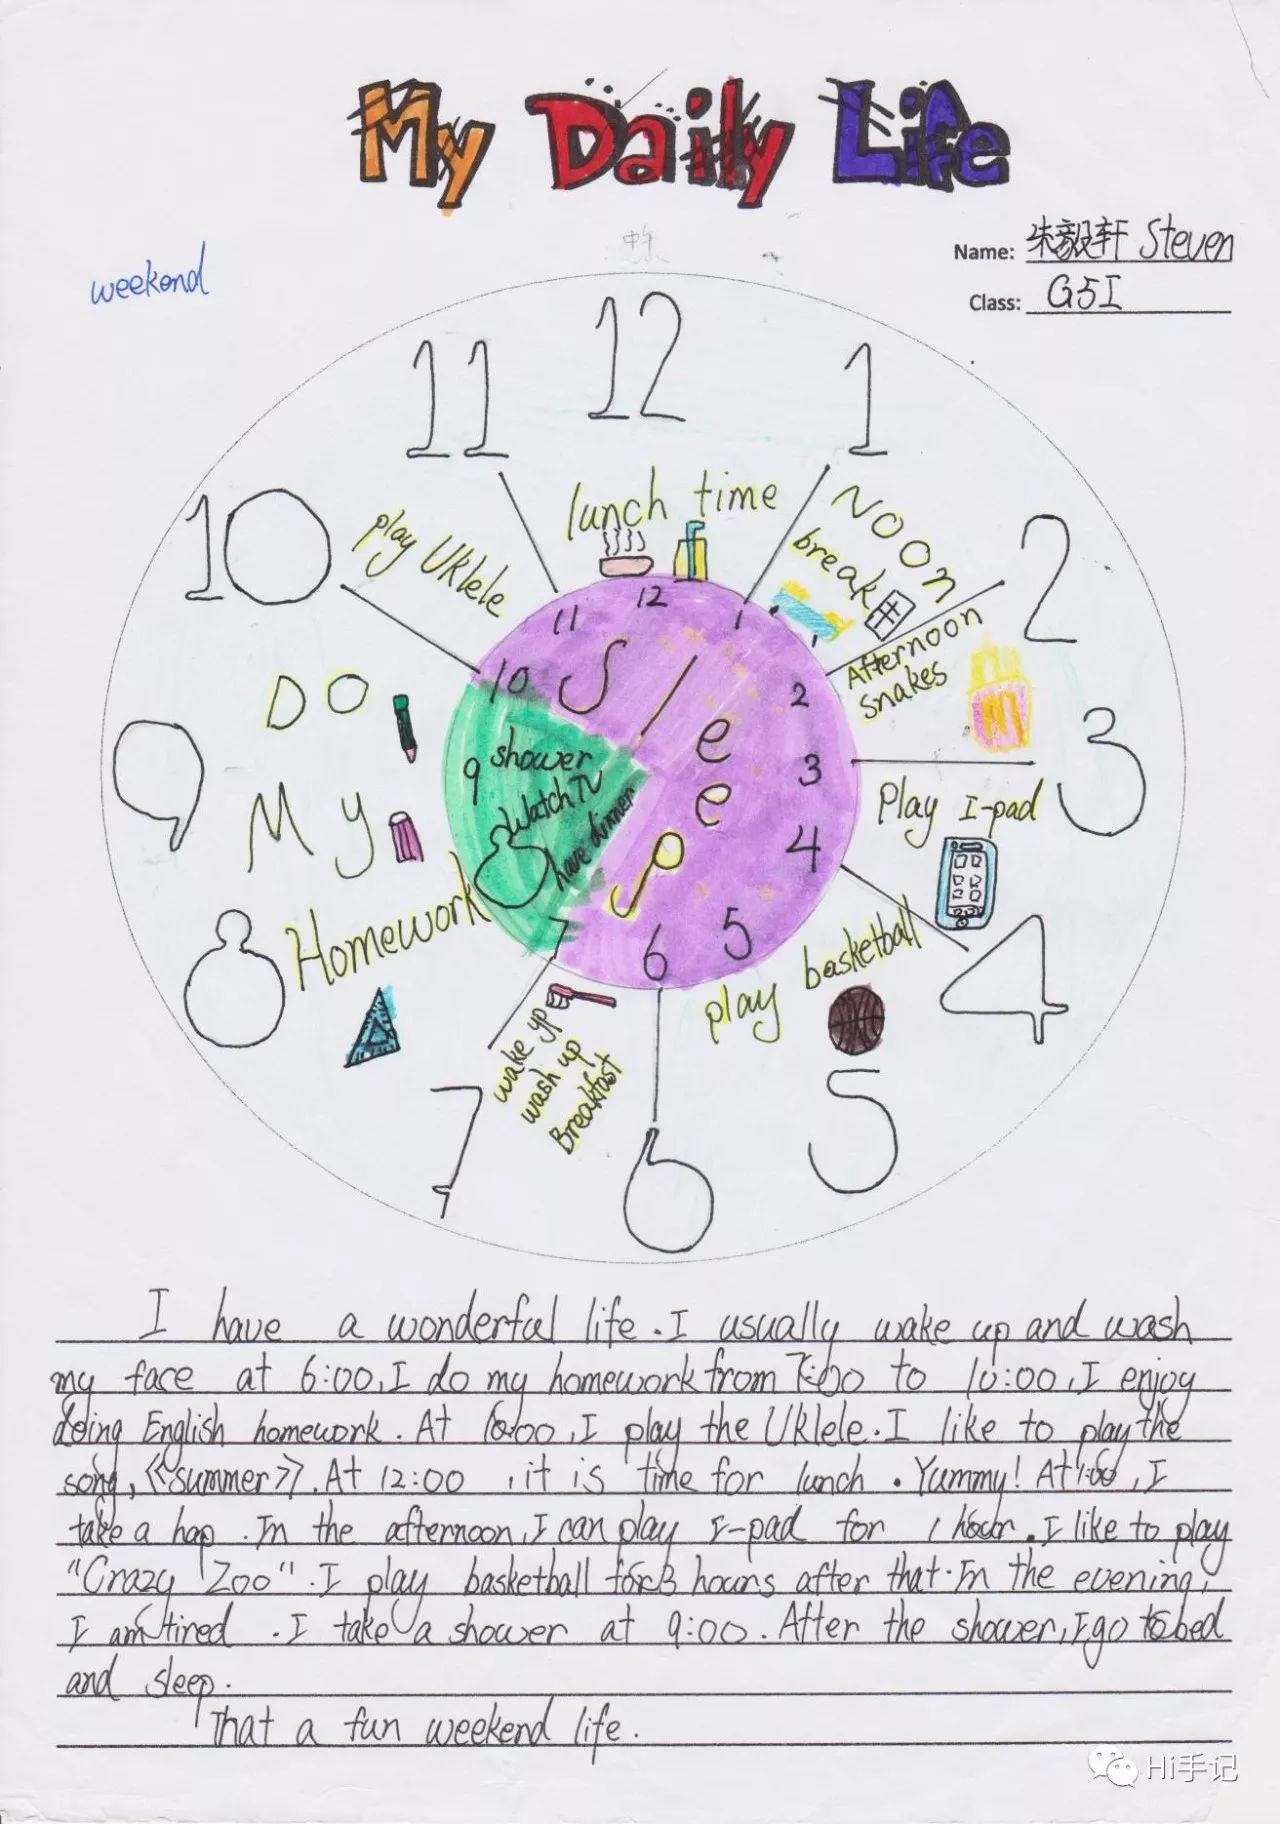 My Daily Life
Name: 朱毅轩 Steven
Class: G5I
weekend
12
11
1
10
2
9
3
8
4
7
5
6
play Uklele
lunch time
NOON
break
Afternoon
snakes
Play I-pad
play basketball
wake up
wash up
Breakfast
DO
My
Homework
12
11
1
10
2
9
3
8
4
7
5
6
Sleep
shower
Watch TV
have dinner
I have a wonderful life. I usually wake up and wash
my face at 6:00, I do my homework from 7:00 to 10:00, I enjoy
doing English homework. At 10:00, I play the Uklele. I like to play the
song, 《summer》. At 12:00, it is time for lunch. Yummy! At 1:00, I
take a nap. In the afternoon, I can play I-pad for 1 hour. I like to play
"Crazy Zoo". I play basketball for 3 hours after that. In the evening,
I am tired. I take a shower at 9:00. After the shower, I go to bed
and sleep.
That a fun weekend life.
Hi手记